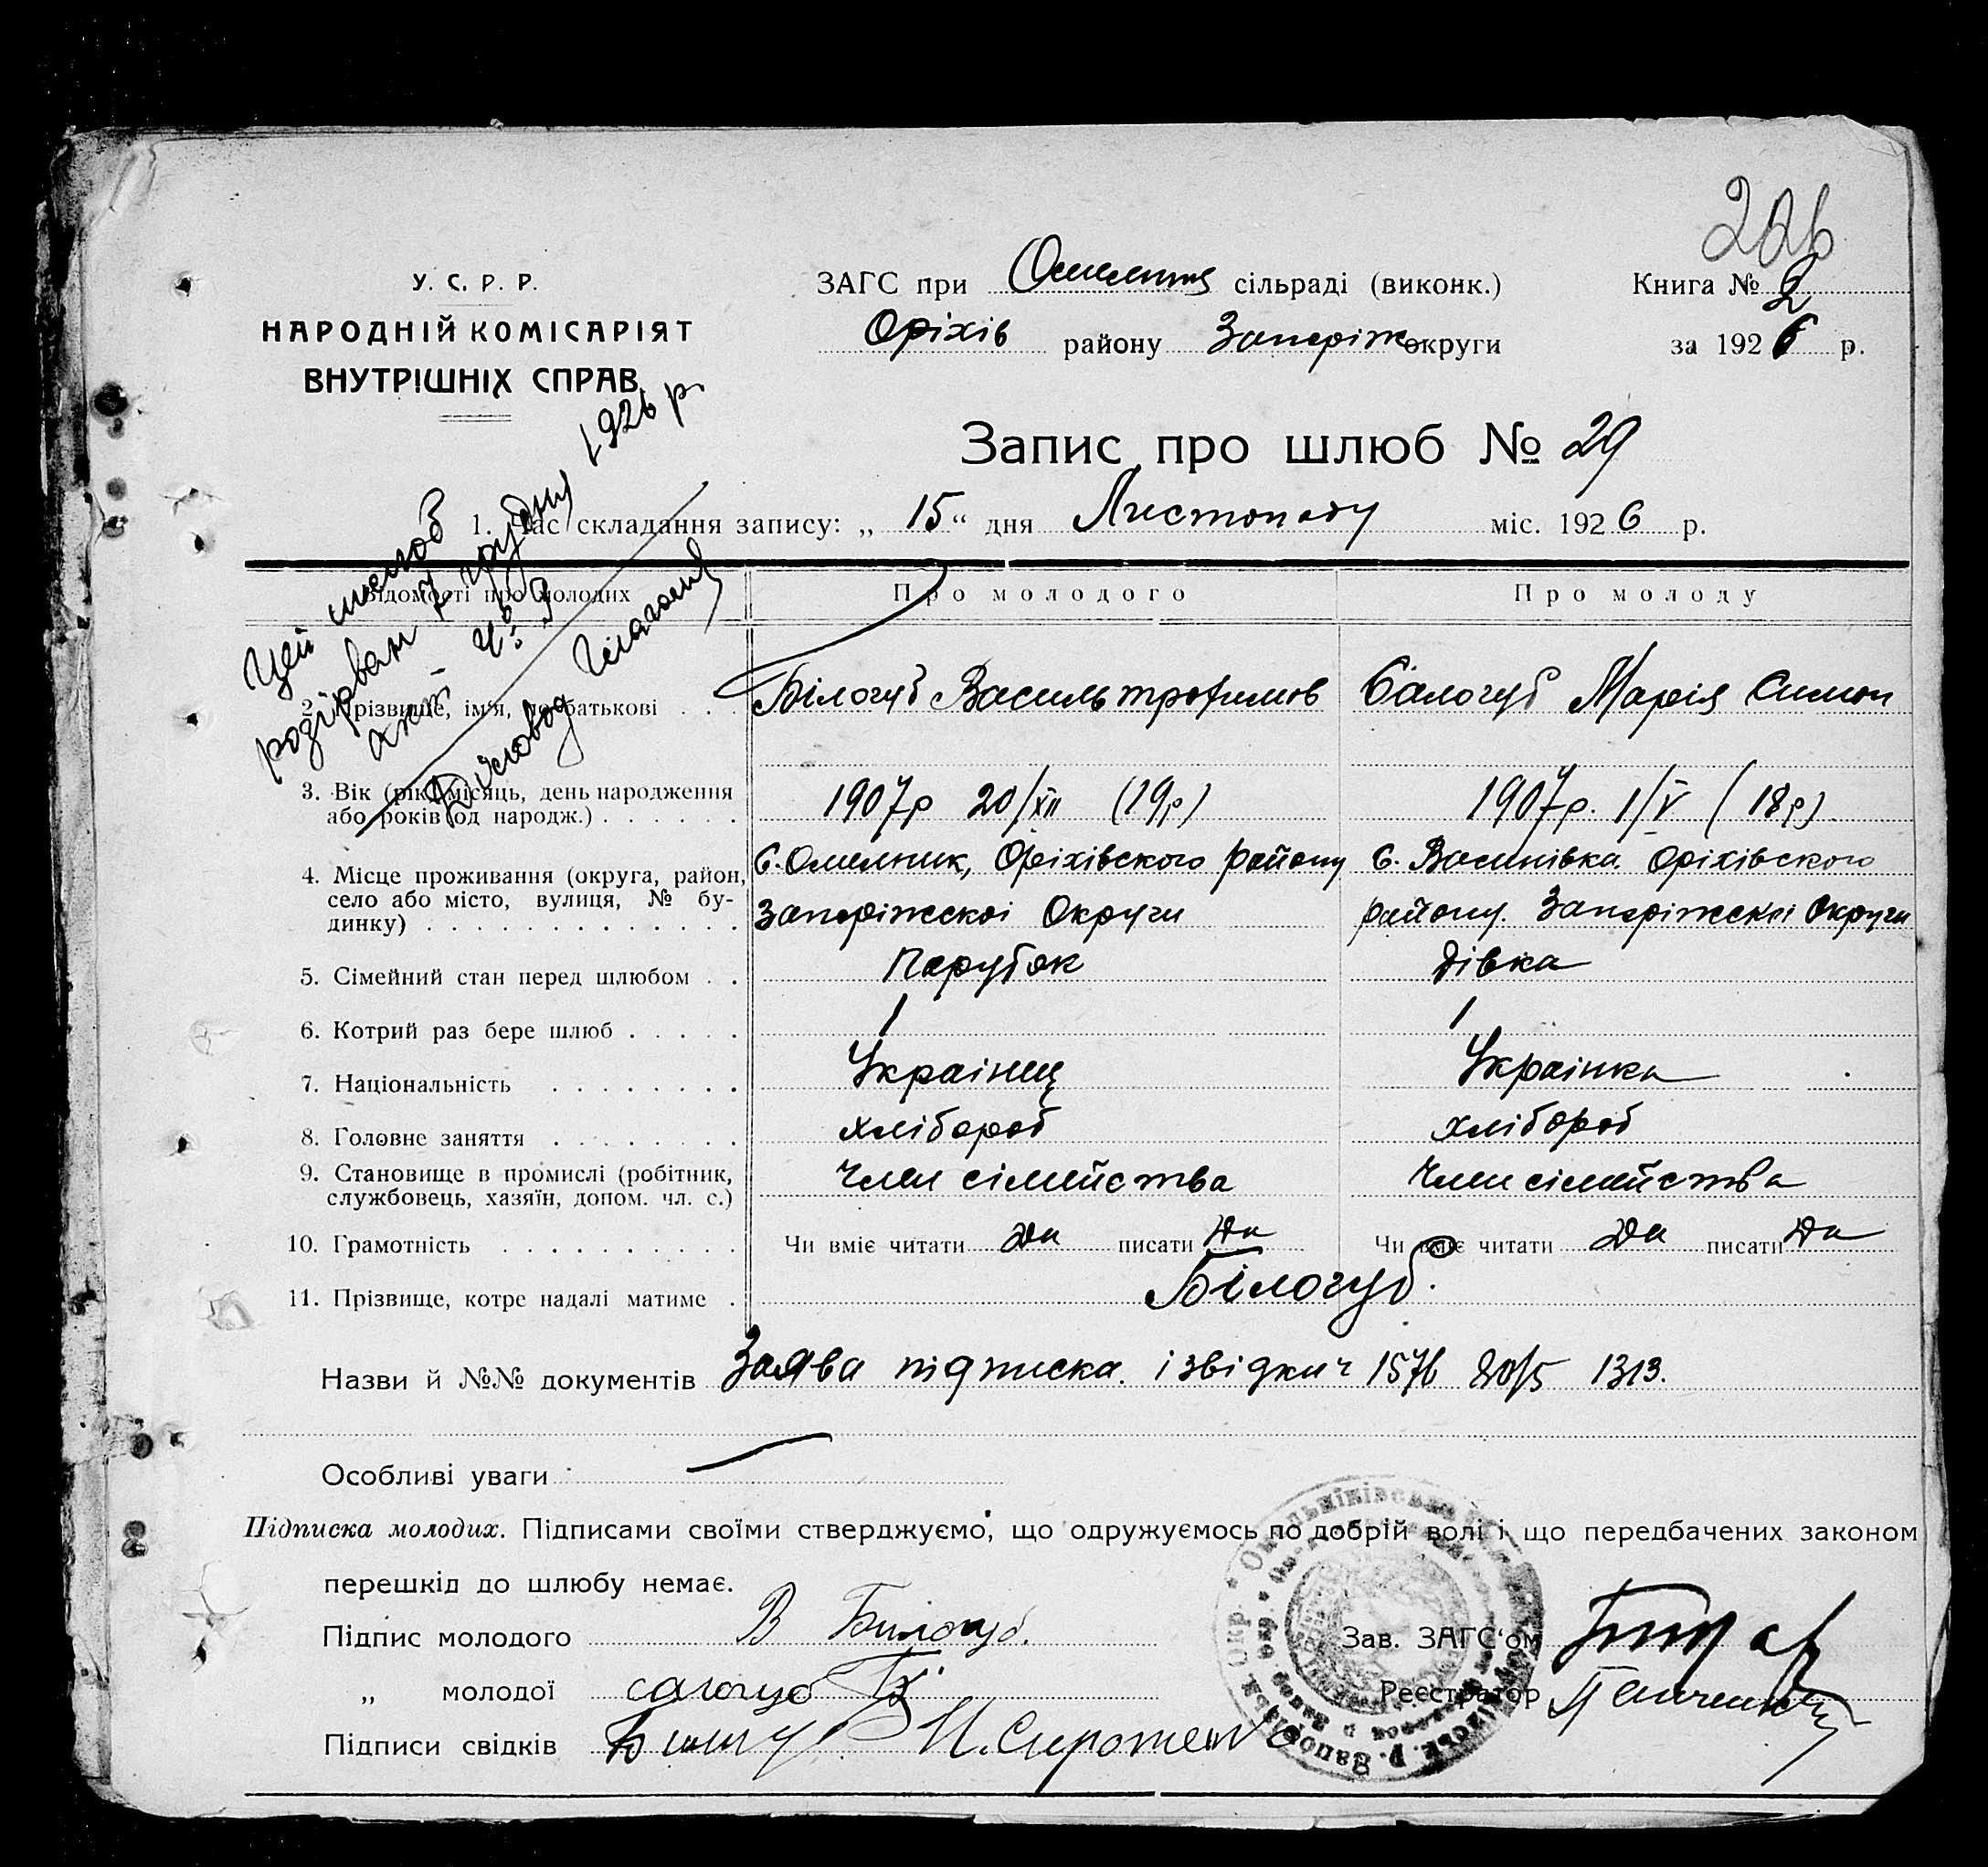 226
У. С. Р. Р.
НАРОДНІЙ КОМІСАРІЯТ
ВНУТРІШНІХ СПРАВ
ЗАГС при сільраді (виконк.)
Оріхів району Запоріж округи
Книга № 2
за 1926 р.
Запис про шлюб № 29
1. Час складання запису: „ 15 “ дня Листопаду міс. 1926 р.
Цей шлюб
розірван 7 грудня 1926 р
акт ч: 9
Діловод
Відомості про молодих Про молодого Про молоду
2. Прізвище, ім'я, по батькові . . . Білогуб Василь Трофимов Салогуб Марія Симон
3. Вік (рік, місяць, день народження
або років од народж.) . . . . . . 1907р 20/XII (19р) 1907р. 1/V (18р)
4. Місце проживання (округа, район,
село або місто, вулиця, № бу-
динку) . . . . . . . . . . . . .
С. Омельник, Оріхівського району
Запоріжскоі Округи
С. Васинівка Оріхівского
району. Запоріжскоі Округи
5. Сімейний стан перед шлюбом . . Парубок Дівка
6. Котрий раз бере шлюб . . . . . 1 1
7. Національність . . . . . . . . Українец Українка
8. Головне заняття . . . . . . . . хлібороб хлібороб
9. Становище в промислі (робітник,
службовець, хазяїн, допом. чл. с.) Член сімейства Член сімейства
10. Грамотність . . . . . . . . . . Чи вміє читати Да писати Да Чи вміє читати Да писати Да
11. Прізвище, котре надалі матиме . Білогуб.
Назви й №№ документів Заява підписка. і звідки ч 1576 20/5 1313.
Особливі уваги
Підписка молодих. Підписами своїми стверджуємо, що одружуємось по добрій волі і що передбачених законом
перешкід до шлюбу немає.
Підпис молодого В Билогуб.
„ молодої салогуб
Підписи свідків
Зав. ЗАГС'ом
Реєстратор